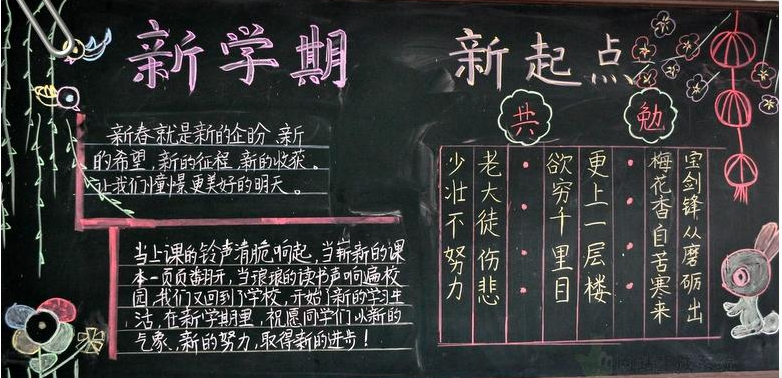 新学期
新起点
共勉
新春就是新的企盼、新
的希望,新的征程,新的收获。
让我们憧憬更美好的明天。
当上课的铃声清脆响起,当崭新的课
本一页页翻开,当琅琅的读书声响遍校
园,我们又回到了学校,开始了新的学习生
活,在新学期里,祝愿同学们以新的
气象、新的努力,取得新的进步!
少壮不努力
老大徒伤悲
欲穷千里目
更上一层楼
梅花香自苦寒来
宝剑锋从磨砺出